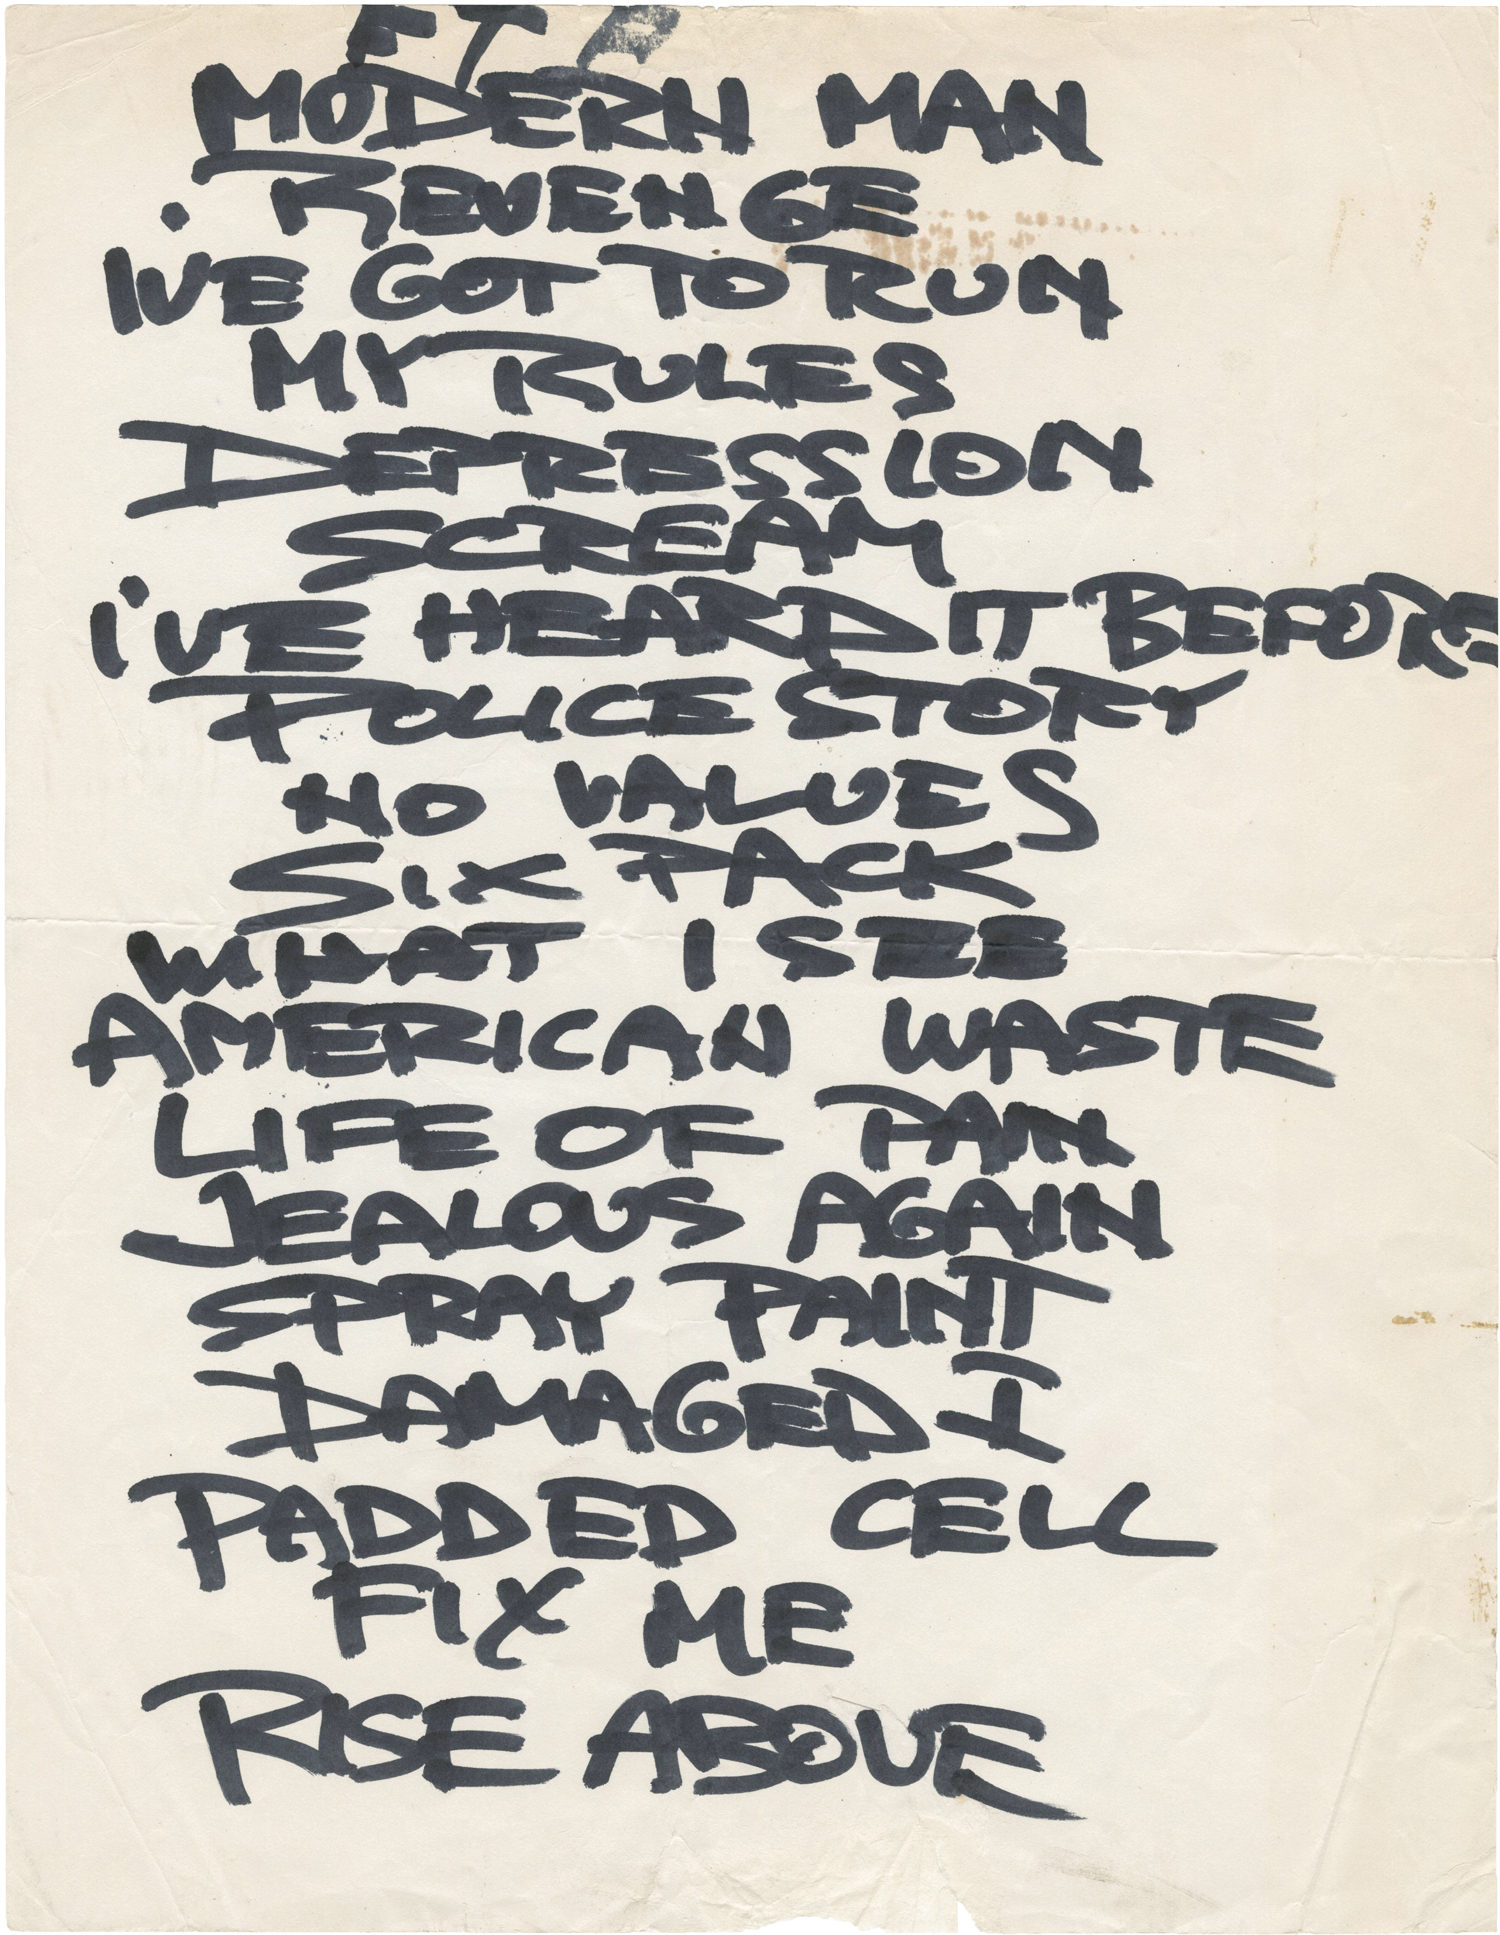 MODERN MAN
REVENGE
I'VE GOT TO RUN
MY RULES
DEPRESSION
SCREAM
I'VE HEARD IT BEFORE
POLICE STORY
NO VALUES
SIX PACK
WHAT I SEE
AMERICAN WASTE
LIFE OF PAIN
JEALOUS AGAIN
SPRAY PAINT
DAMAGED I
PADDED CELL
FIX ME
RISE ABOVE